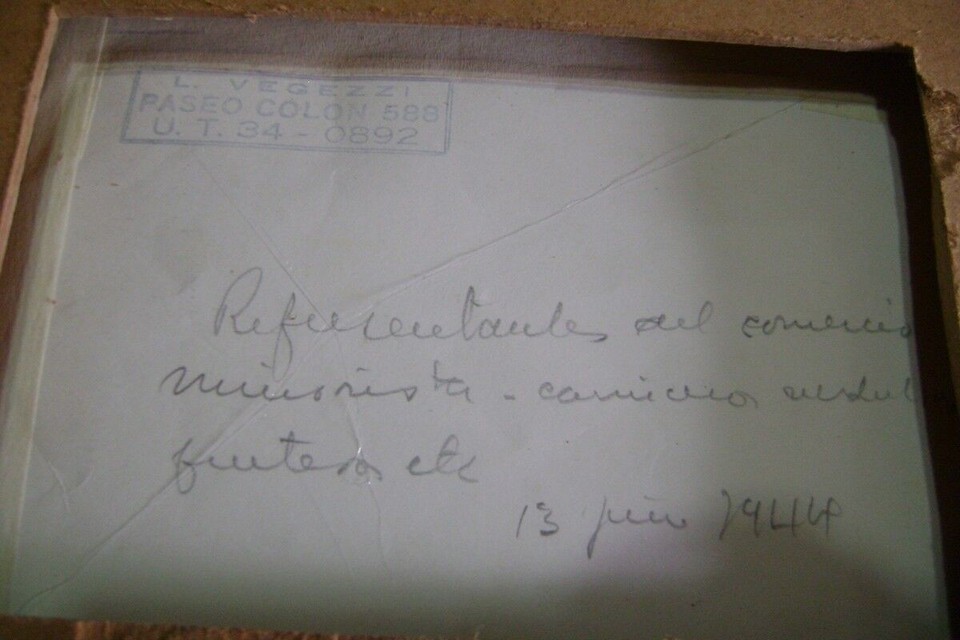 L. VEGEZZI
PASEO COLON 588
U. T. 34 - 0892
Representantes del comercio
minorista - carniceros
fruteros etc
13 junio 1944